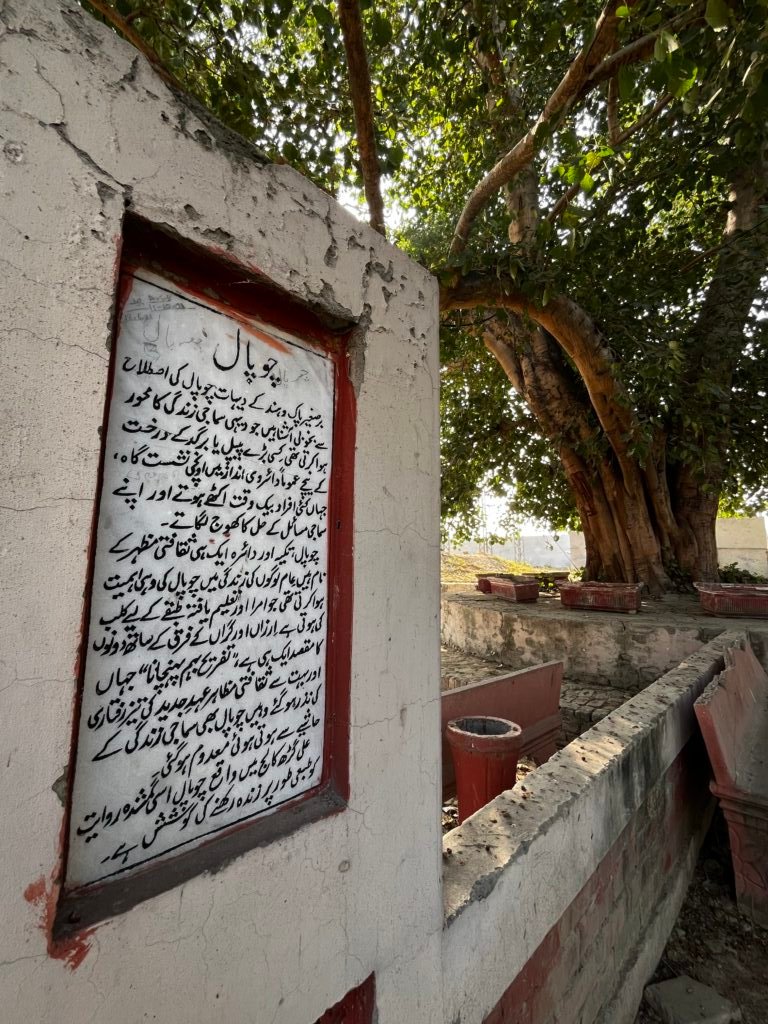 چوپال
برصغیر پاک و ہند کے دیہات چوپال کی اصطلاح
سے بخوبی آشنا ہیں جو دیہی سماجی زندگی کا محور
ہوا کرتی تھی کسی بڑے پیپل یا برگد کے درخت
کے نیچے عموماً دائروی انداز میں اونچی نشست گاہ،
جہاں کئی افراد بیک وقت اکٹھے ہوتے اور اپنے
سماجی مسائل کے حل کا کھوج لگاتے۔
چوپال، تکیہ اور دائرہ ایک ہی ثقافتی مظہر کے
نام ہیں عام لوگوں کی زندگی میں چوپال کی وہی اہمیت
ہوا کرتی تھی جو امرا اور تعلیم یافتہ طبقے کے لیے کلب
کی ہوتی ہے ارزاں اور گراں کے فرق کے ساتھ دونوں
کا مقصد ایک ہی ہے، "تفریح بہم پہنچانا" جہاں
اور بہت سے ثقافتی مظاہر عہدِ جدید کی تیز رفتاری
کی نذر ہو گئے وہیں چوپال بھی سماجی زندگی کے
حاشیے سے ہوتی ہوئی معدوم ہو گئی۔
علی گڑھ کالج میں واقع چوپال اسی گمشدہ روایت
کو طبعی طور پر زندہ رکھنے کی کوشش ہے۔